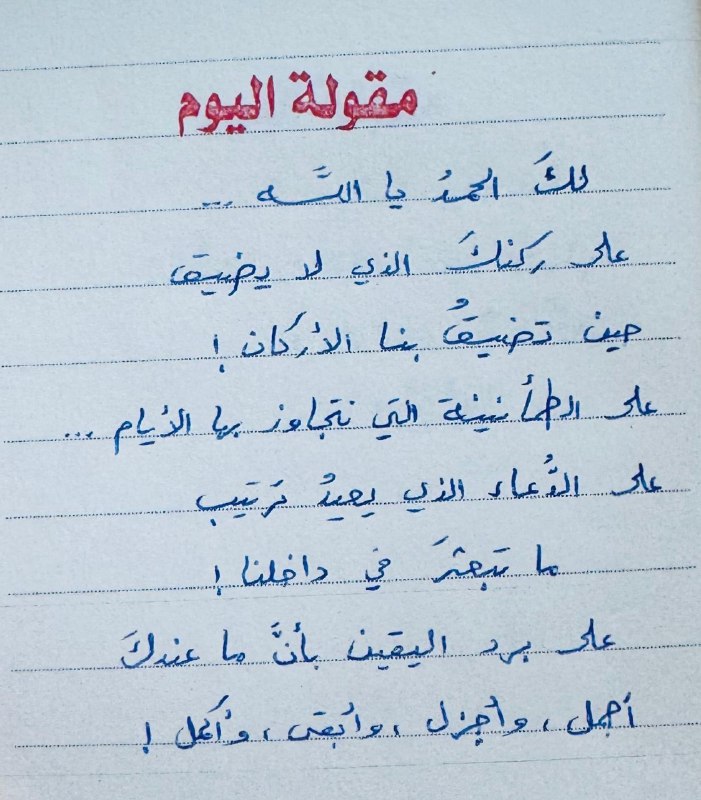 مقولة اليوم
لكَ الحمدُ يا اللَّـه ...
على ركنكَ الذي لا يضيق
حين تضيقُ بنا الأركان !
على الطمأنينة التي نتجاوز بها الأيام ...
على الدُّعاء الذي يعيدُ ترتيب
ما تبعثرَ في داخلنا !
على برد اليقين بأنَّ ما عندكَ
أجمل ، وأجزل ، وأبقى ، وأكمل !